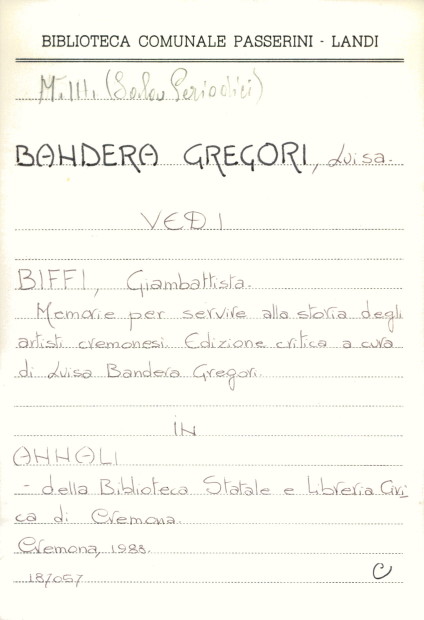 BIBLIOTECA COMUNALE PASSERINI - LANDI
M. III. (Salou Periodici)
BANDERA GREGORI, Luisa.
VEDI
BIFFI, Giambattista.
Memorie per servire alla storia degli
artisti cremonesi. Edizione critica a cura
di Luisa Bandera Gregori.
IN
ANNALI
- della Biblioteca Statale e Libreria Civi
ca di Cremona.
Cremona, 1988.
187057
C